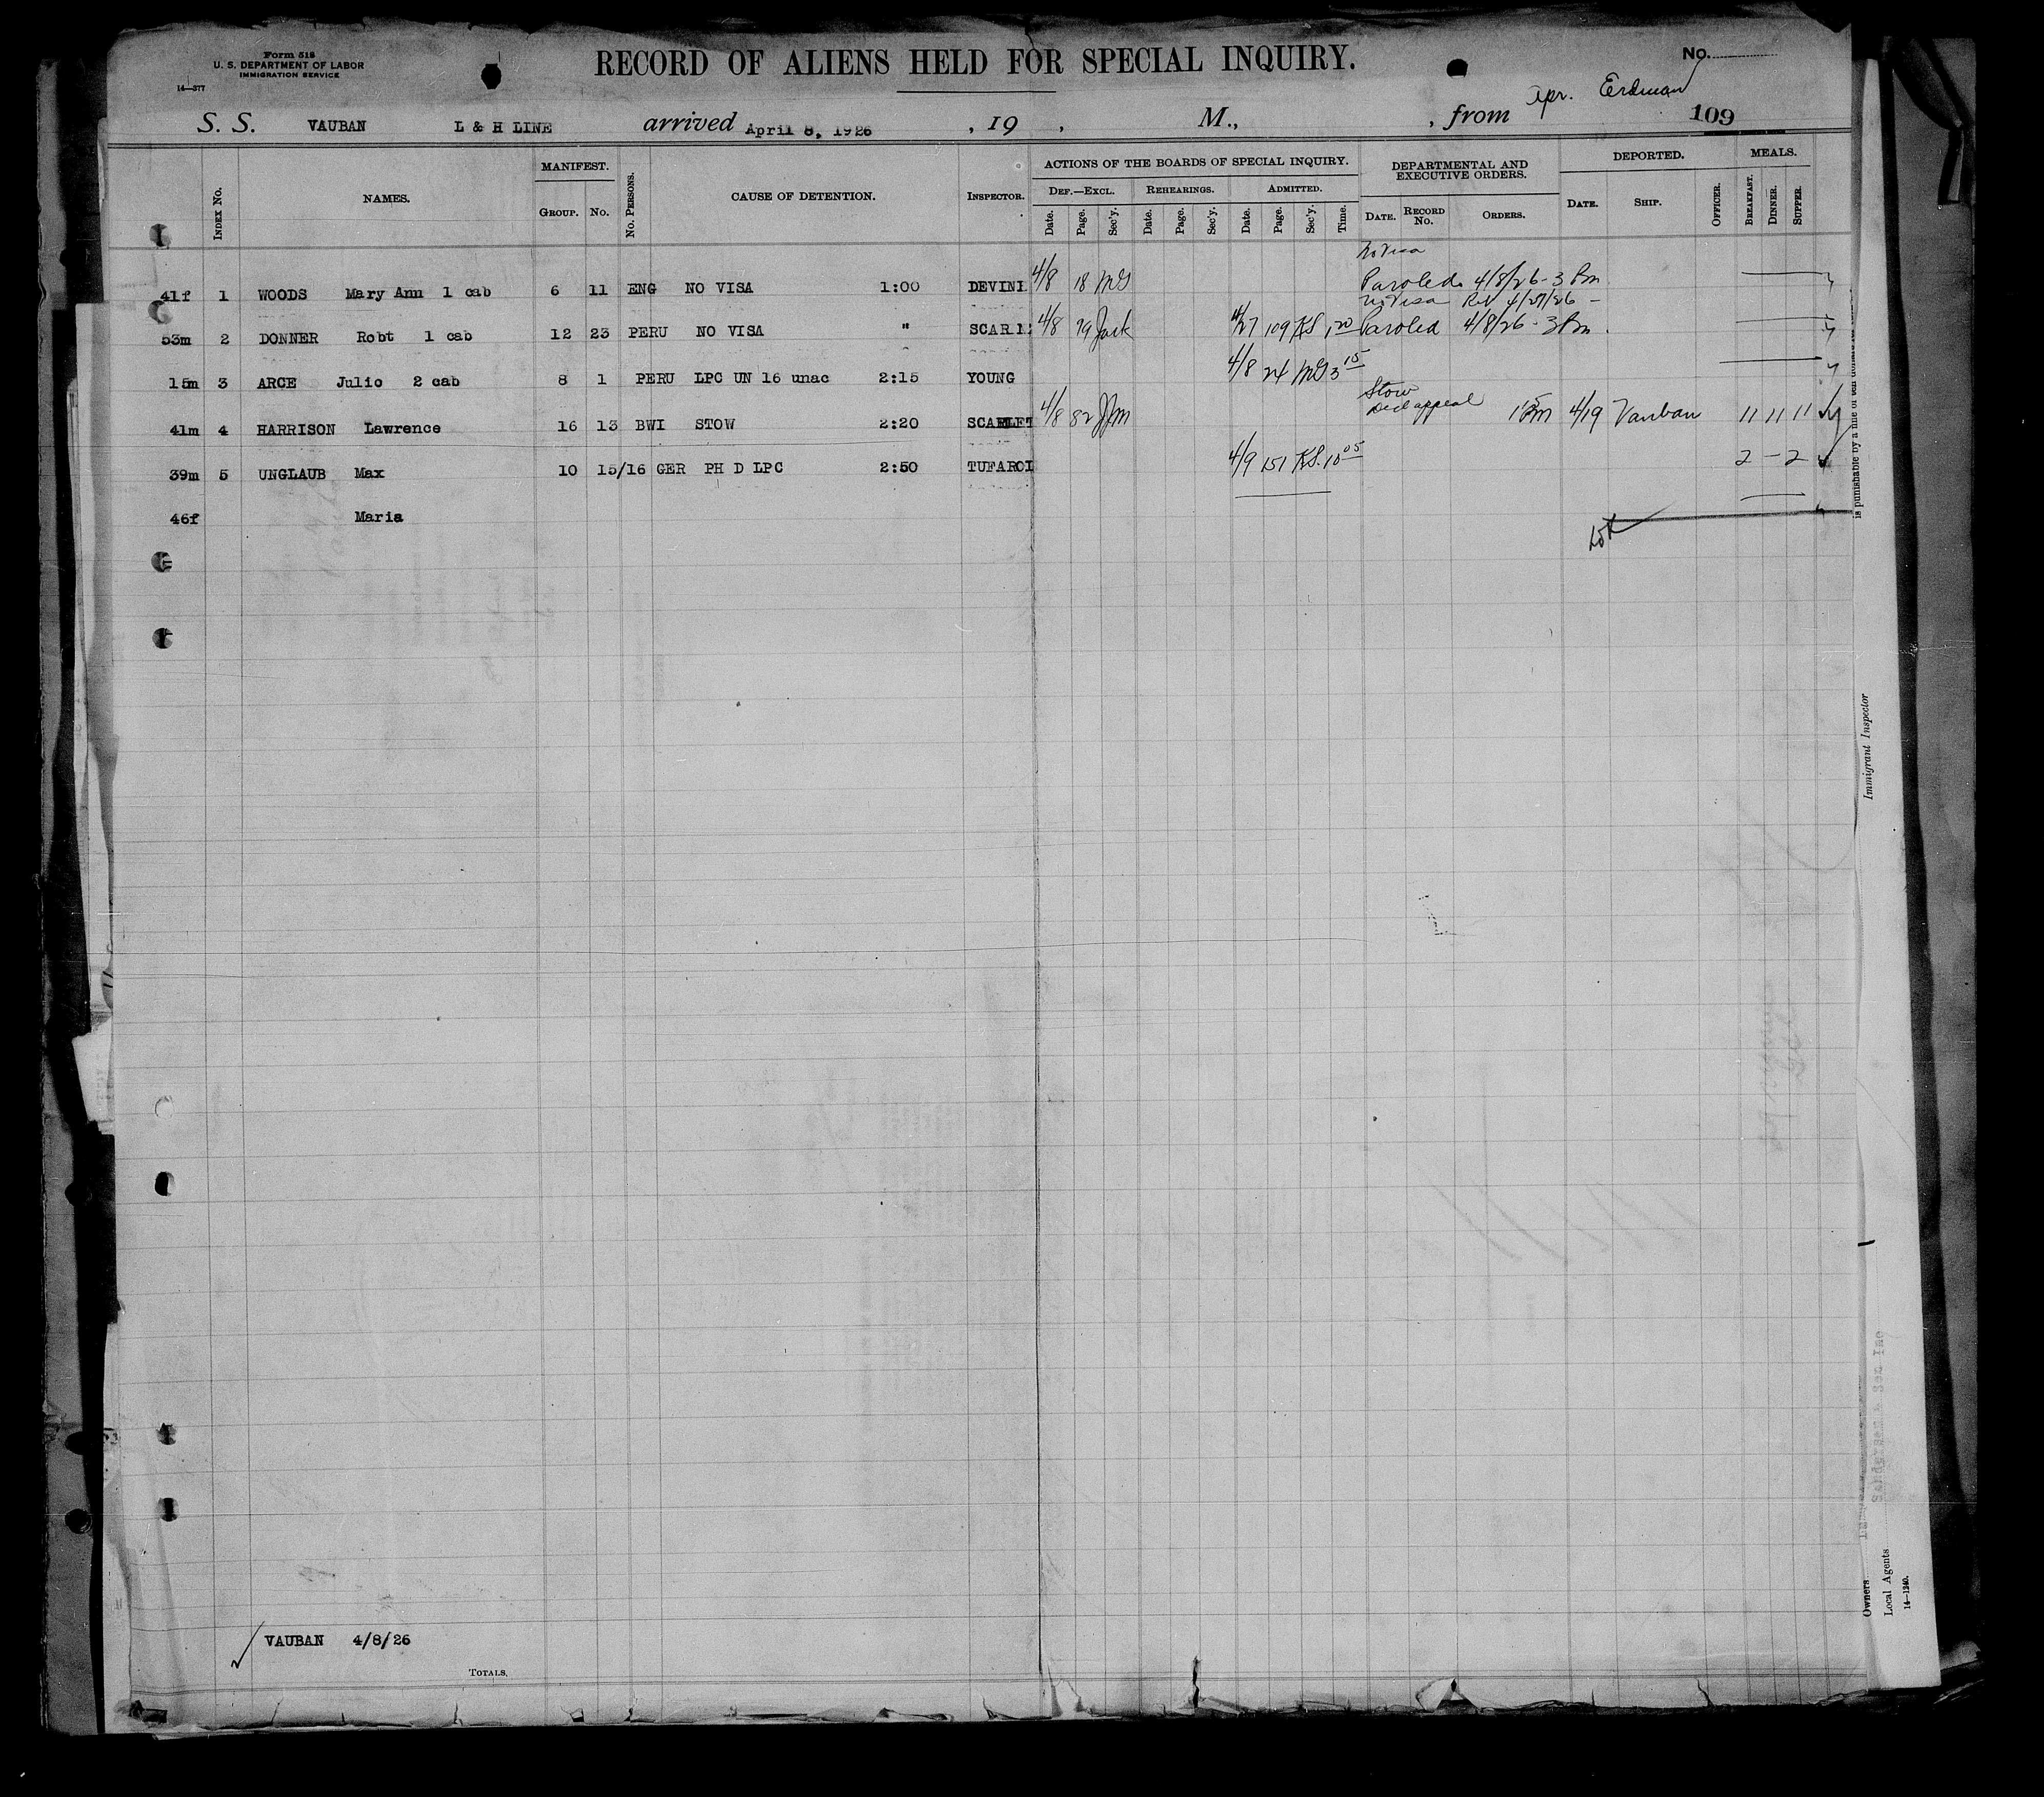 Form 518
U. S. DEPARTMENT OF LABOR
IMMIGRATION SERVICE
14—377
RECORD OF ALIENS HELD FOR SPECIAL INQUIRY.
No.
Apr. Erdman
S. S. VAUBAN L & H LINE arrived April 8, 1926 , 19 , M., , from 109
INDEX No. NAMES. MANIFEST. GROUP. No. No. PERSONS. CAUSE OF DETENTION. INSPECTOR. ACTIONS OF THE BOARDS OF SPECIAL INQUIRY. DEF.—EXCL. Date. Page. Sec'y. REHEARINGS. Date. Page. Sec'y. ADMITTED. Date. Page. Sec'y. Time. DEPARTMENTAL AND EXECUTIVE ORDERS. DATE. RECORD No. ORDERS. DEPORTED. DATE. SHIP. OFFICER. MEALS. BREAKFAST. DINNER. SUPPER.
No Visa
41f 1 WOODS Mary Ann 1 cab 6 11 ENG NO VISA 1:00 DEVINE 4/8 18 MG Paroled 4/8/26 - 3 Pm
No Visa 4/27/26 -
53m 2 DONNER Robt 1 cab 12 23 PERU NO VISA " 4/8 79 4/27 109 KS 1 20 Paroled 4/8/26 - 3 Pm
15m 3 ARCE Julio 2 cab 8 1 PERU LPC UN 16 unac 2:15 YOUNG 4/8 24 MG 3 15
Stow
Decl appeal
41m 4 HARRISON Lawrence 16 13 BWI STOW 2:20 SCARLET 4/8 82 JJM 4/19 Vauban 11 11 11
39m 5 UNGLAUB Max 10 15/16 GER PH D LPC 2:50 TUFAROL 4/9 151 KS. 10 05 2 - 2
46f Maria
VAUBAN 4/8/26
TOTALS.
is punishable by a fine of ten
Immigrant Inspector
Owners
Local Agents
14—1240.